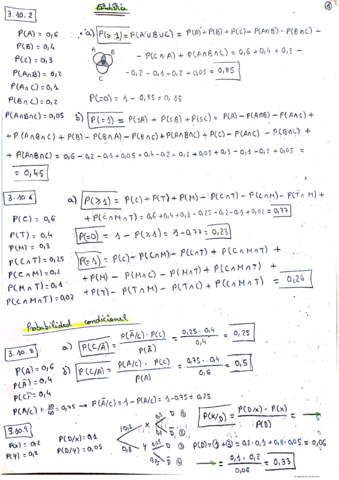 3.10.2
P(A) = 0,6
P(B) = 0,4
P(C) = 0,3
P(A∩B) = 0,2
P(A∩C) = 0,1
P(B∩C) = 0,2
P(A∩B∩C) = 0,05
a) P(≥1) = P(A∪B∪C) = P(A) + P(B) + P(C) - P(A∩B) - P(B∩C) -
A B
C
- P(C∩A) + P(A∩B∩C) = 0,6 + 0,4 + 0,3 -
- 0,2 - 0,1 - 0,2 + 0,05 = 0,85
P(=0) = 1 - 0,85 = 0,15
b) P(=1) = P(SA) + P(SB) + P(SC) = P(A) - P(A∩B) - P(A∩C) +
+ P(A∩B∩C) + P(B) - P(B∩A) - P(B∩C) + P(A∩B∩C) + P(C) - P(A∩C) - P(B∩C) +
+ P(A∩B∩C) = 0,6 - 0,2 - 0,1 + 0,05 + 0,4 - 0,2 - 0,2 + 0,05 + 0,3 - 0,1 - 0,2 + 0,05 =
= 0,45
3.10.6
P(C) = 0,6
P(T) = 0,4
P(M) = 0,3
P(C∩T) = 0,25
P(C∩M) = 0,2
P(M∩T) = 0,1
P(C∩M∩T) = 0,02
a) P(≥1) = P(C) + P(T) + P(M) - P(C∩T) - P(C∩M) - P(T∩M) +
+ P(C∩M∩T) = 0,6 + 0,4 + 0,3 - 0,25 - 0,2 - 0,1 + 0,02 = 0,77
P(=0) = 1 - P(≥1) = 1 - 0,77 = 0,23
P(=1) = P(C) - P(C∩M) - P(C∩T) + P(C∩M∩T) +
+ P(M) - P(M∩C) - P(M∩T) + P(C∩M∩T) +
+ P(T) - P(T∩M) - P(T∩C) + P(C∩M∩T) = 0,26
Probabilidad condicional
P(A) = 0,6
P(Ā) = 0,4
P(C) = 0,4
a) P(C/Ā) = P(Ā/C) · P(C) / P(Ā) = 0,25 · 0,4 / 0,4 = 0,25
b) P(C/A) = P(A/C) · P(C) / P(A) = 0,75 · 0,4 / 0,6 = 0,5
= 0,75 → P(Ā/C) = 1 - P(A/C) = 1 - 0,75 = 0,25
P(X) = 0,2
P(Y) = 0,8
P(D/X) = 0,1
P(D/Y) = 0,05
P(X/D) = P(D/X) · P(X) / P(D) =
= 0,2 · 0,1 + 0,8 · 0,05 = 0,06
= 0,1 · 0,2 / 0,06 = 0,33